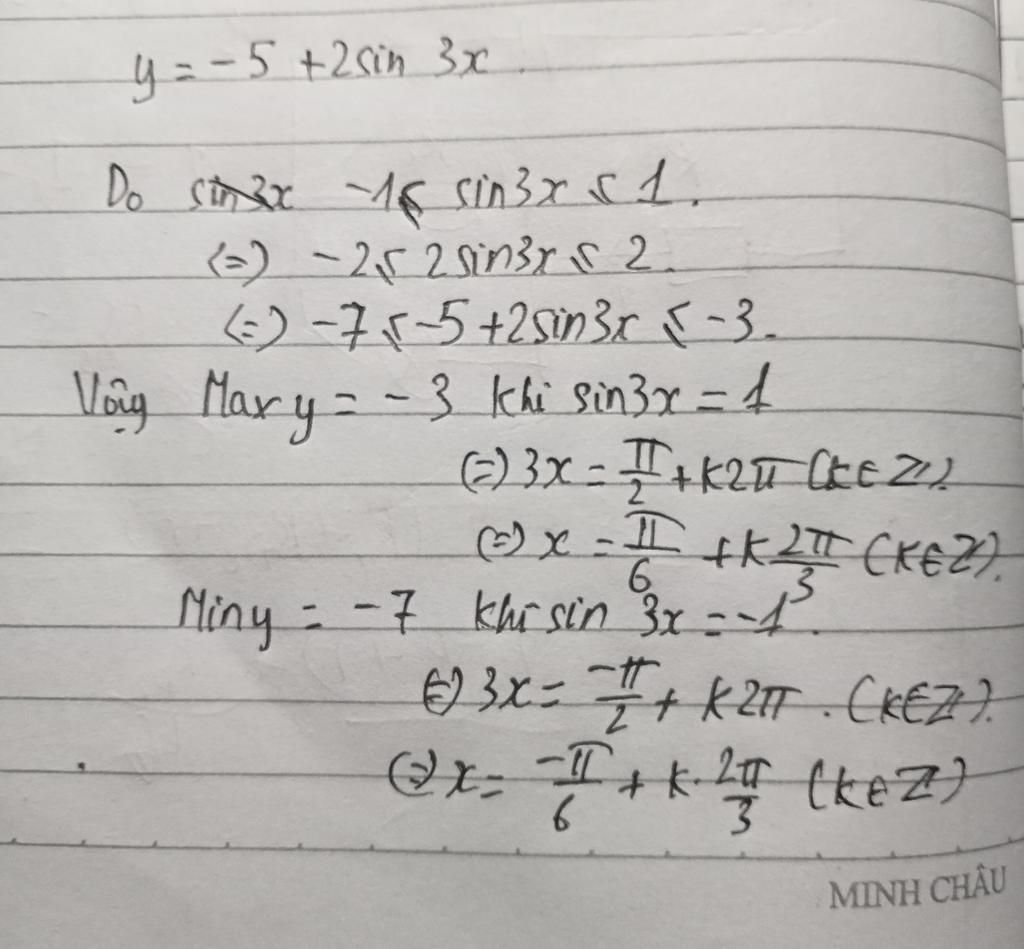 y = -5 + 2sin 3x.
Do sin3x -1 ≤ sin3x ≤ 1.
(=) -2 ≤ 2sin3x ≤ 2.
(=) -7 ≤ -5 + 2sin3x ≤ -3.
Vậy Max y = -3 khi sin3x = 1
(=) 3x = π/2 + k2π (k ∈ Z).
(=) x = π/6 + k 2π/3 (k ∈ Z).
Min y = -7 khi sin 3x = -1.
(=) 3x = -π/2 + k2π. (k ∈ Z).
(=) x = -π/6 + k. 2π/3 (k ∈ Z)
MINH CHÂU